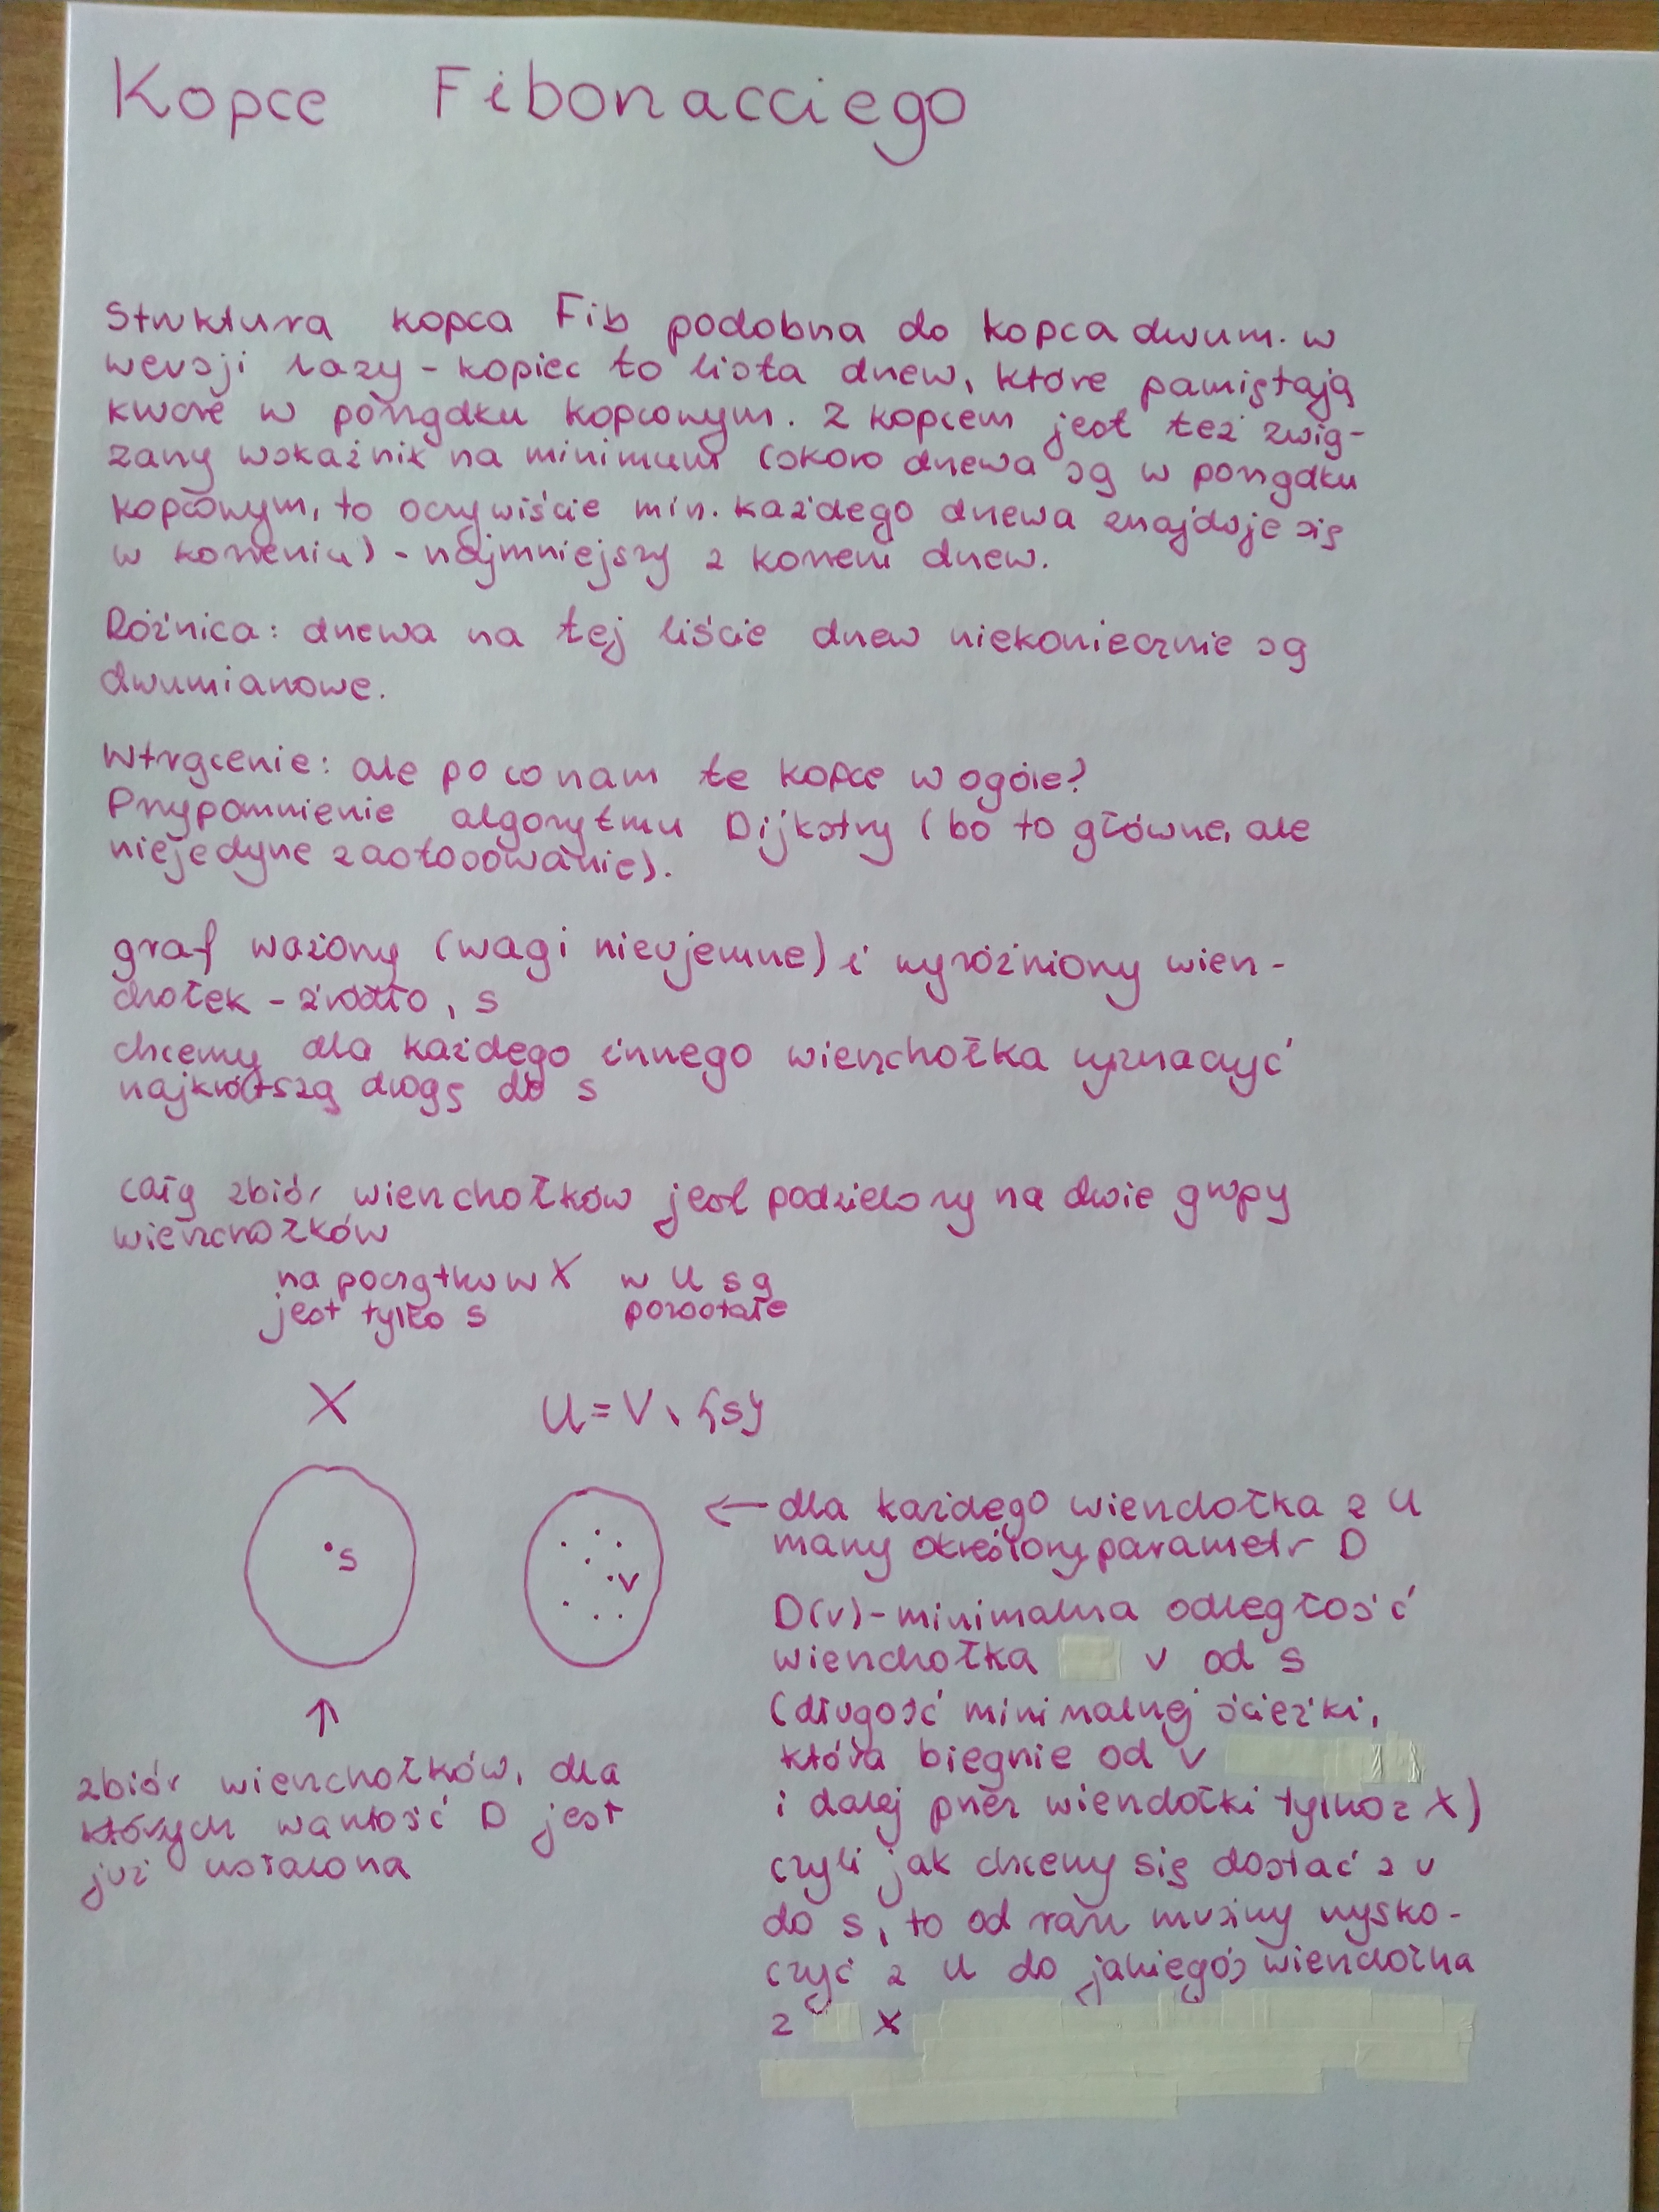 Kopce Fibonacciego
Struktura kopca Fib podobna do kopca dwum. w
wersji lazy - kopiec to lista drzew, które pamiętają
klucze w porządku kopcowym. Z kopcem jest też zwią-
zany wskaźnik na minimum (skoro drzewa są w porządku
kopcowym, to oczywiście min. każdego drzewa znajduje się
w korzeniu) - najmniejszy z korzeni drzew.
Różnica: drzewa na tej liście drzew niekoniecznie są
dwumianowe.
Wtrącenie: ale po co nam te kopce w ogóle?
Przypomnienie algorytmu Dijkstry (bo to główne, ale
niejedyne zastosowanie).
graf ważony (wagi nieujemne) i wyróżniony wierz-
chołek - źródło, s
chcemy dla każdego innego wierzchołka wyznaczyć
najkrótszą drogę do s
cały zbiór wierzchołków jest podzielony na dwie grupy
wierzchołków
na początku w X
jest tylko s
w U są
pozostałe
X
U = V \ {s}
s
v
← dla każdego wierzchołka z U
mamy określony parametr D
D(v) - minimalna odległość
wierzchołka v od s
(długość minimalnej ścieżki,
która biegnie od v
i dalej przez wierzchołki tylko z X)
czyli jak chcemy się dostać z v
do s, to od razu musimy wysko-
czyć z U do jakiegoś wierzchołka
z X
↑
zbiór wierzchołków, dla
których wartość D jest
już ustalona